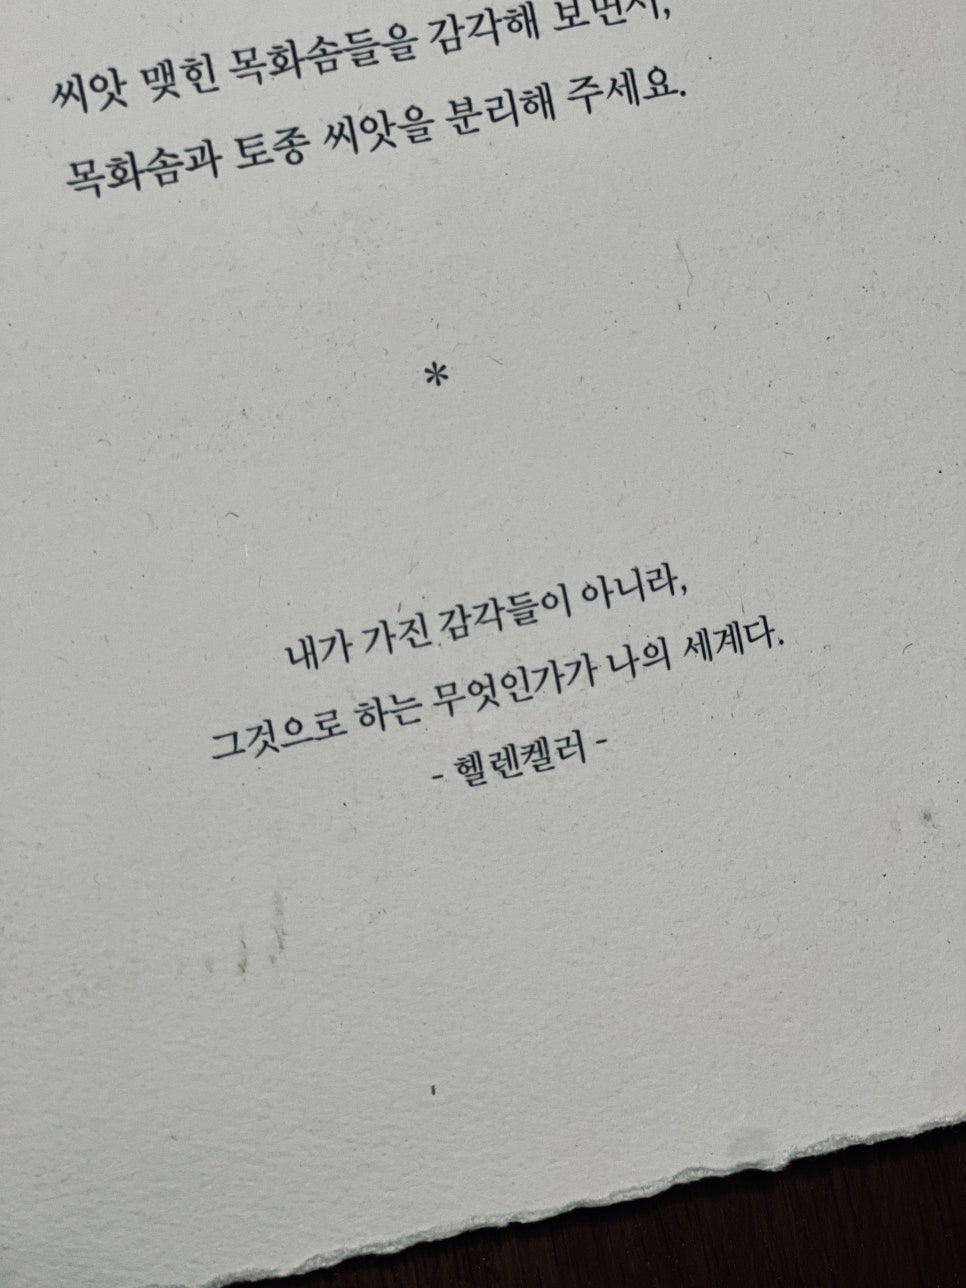 씨앗 맺힌 목화솜들을 감각해 보면서,
목화솜과 토종 씨앗을 분리해 주세요.
*
내가 가진 감각들이 아니라,
그것으로 하는 무엇인가가 나의 세계다.
- 헬렌켈러 -